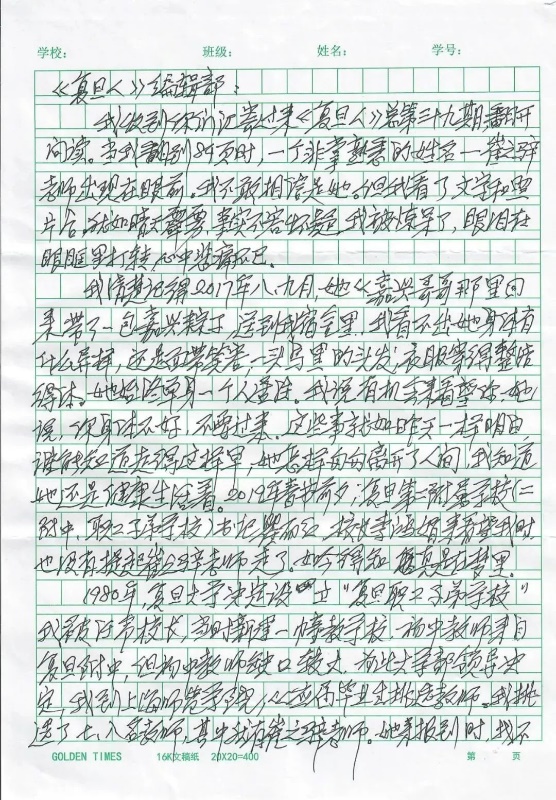 学校： 班级： 姓名： 学号：
《复旦人》编辑部：
我收到你们汇寄过来《复旦人》总第三十九期翻开
阅读。当我翻到85页时，一个非常熟悉的姓名—崔
老师出现在眼前。我不敢相信是她。但我看了文字和照
片后，犹如晴天霹雳，事实不容怀疑，我被惊呆了，眼泪在
眼眶里打转，心中悲痛不已。
我清楚记得2017年八、九月，她从嘉兴哥哥那里回
来带了一包嘉兴粽子，送到我宿舍里，我看不出她身体有
什么异样，还是面带笑容，一头乌黑的头发，衣服穿得整洁
得体。她始终单身一个人居住。我说有机会来看望你，她
说，你身体不好，不要过来。这些事就如昨天一样明白，
谁能知道走得这样早，她怎样匆匆离开了人间，我知道
她还是健康生活着。2019年春节前夕，复旦第二附属学校（二
附中、职工子弟学校）书记 校长 来看望我时，
也没有提起崔 老师走了。如今得知 真是在梦里。
1980年，复旦大学决定设立“复旦职工子弟学校”，
我被任命校长，当时新建一幢教学校，初中教师来自
复旦附中，但初中教师缺口较大，为此大学部领导决
定，我到上海师范学院，从应届毕业生挑选教师。我挑
选了七、八名教师，其中就有崔 老师。她来报到时，我不
GOLDEN TIMES 16K文稿纸 20X20=400 第 页